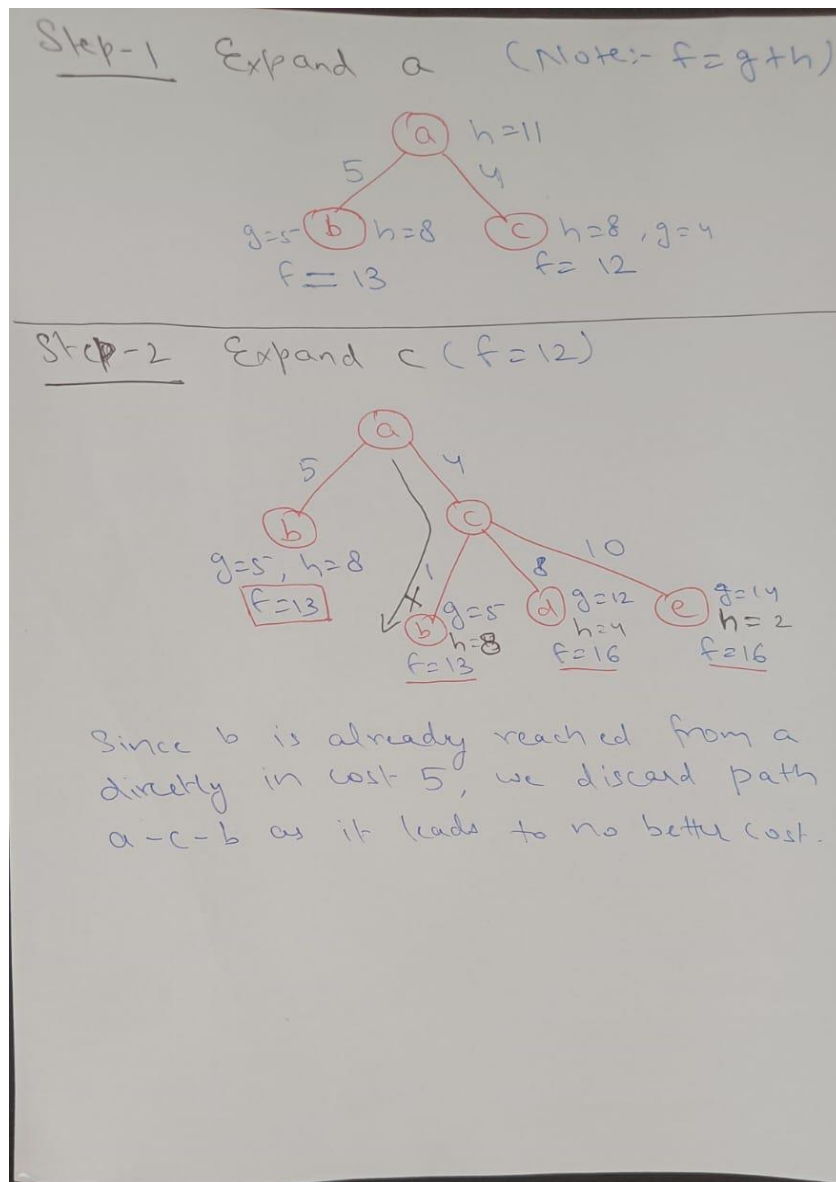 Step-1 Expand a (Note:- f=g+h)
a h=11
5 4
g=5 b h=8 c h=8, g=4
f=13 f=12
Step-2 Expand c (f=12)
a
5 4
b c
g=5, h=8 1 8 10
f=13 x
b g=5 d g=12 e g=14
h=8 h=4 h=2
f=13 f=16 f=16
Since b is already reached from a
directly in cost 5, we discard path
a-c-b as it leads to no better cost.